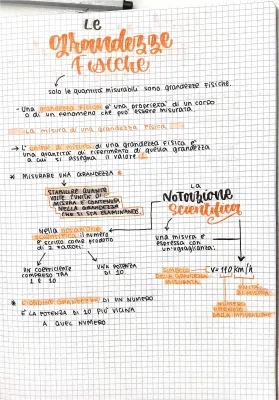 Le
Grandezze
Fisiche
solo le quantità misurabili sono grandezze fisiche.
- Una grandezza fisica è una proprietà di un corpo
o di un fenomeno che può essere misurata
La misura di una grandezza fisica
→ L'unità di misura di una grandezza fisica è
una quantità di riferimento di quella grandezza
a cui si assegna il valore 1
* Misurare una grandezza è
stabilire quante
volte l'unità di
misura è contenuta
nella grandezza
che si sta esaminando
La
Notazione
Scientifica
Nella notazione
scientifica il numero
è scritto come prodotto
di 2 fattori:
una misura è
espressa con
un'uguaglianza:
un coefficiente
compreso tra
1 e 10
una potenza
di 10
simbolo
della grandezza
misurata
v=110 km/h
unità
di misura
numero
ottenuto
dalla misurazione
* L'ordine di grandezza di un numero
è la potenza di 10 più vicina
a quel numero